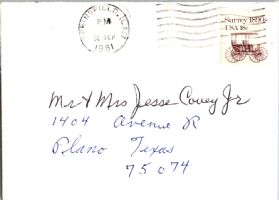 SPRINGFIELD, IL 627
PM
SEP
1981
Surrey 1890s
USA 18c
Mr & Mrs Jesse Covey Jr
1404 Avenue R
Plano Texas
75074